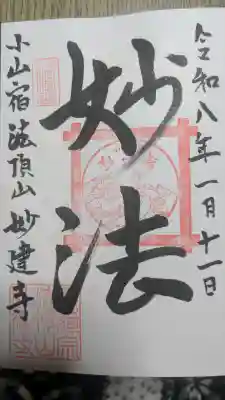 令和八年一月十一日
妙法
小山宿法頂山妙建寺